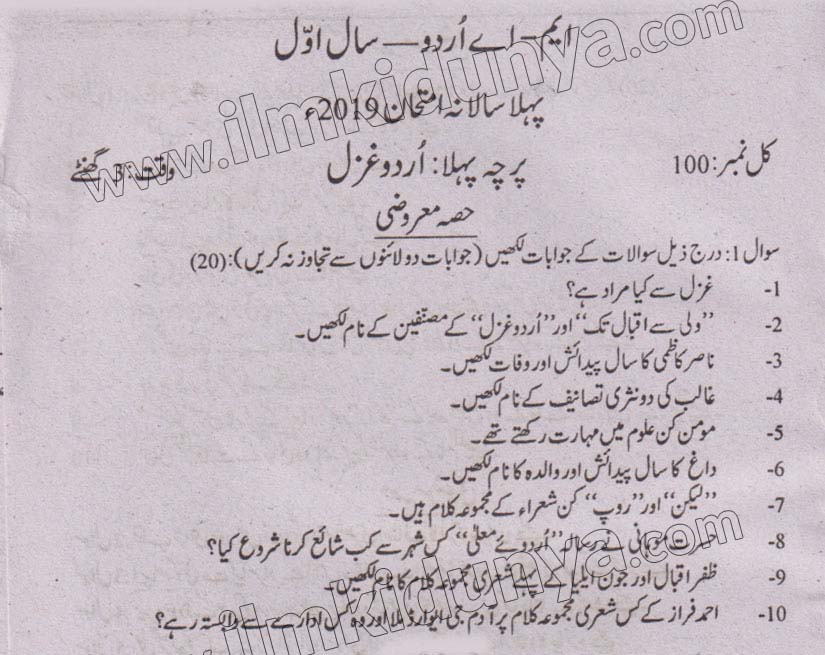 ایم-اے اُردو — سال اوّل
پہلا سالانہ امتحان 2019ء
کل نمبر: 100 پرچہ پہلا: اُردو غزل وقت: 3 گھنٹے
حصہ معروضی
سوال 1: درج ذیل سوالات کے جوابات لکھیں (جوابات دو لائنوں سے تجاوز نہ کریں): (20)
1- غزل سے کیا مراد ہے؟
2- ”ولی سے اقبال تک“ اور ”اُردو غزل“ کے مصنّفین کے نام لکھیں۔
3- ناصر کاظمی کا سال پیدائش اور وفات لکھیں۔
4- غالب کی دو نثری تصانیف کے نام لکھیں۔
5- مومن کن علوم میں مہارت رکھتے تھے۔
6- داغ کا سال پیدائش اور والدہ کا نام لکھیں۔
7- ”لیکن“ اور ”روپ“ کن شعراء کے مجموعہ کلام ہیں۔
8- حسرت موہانی نے رسالہ ”اُردوئے معلیٰ“ کس شہر سے کب شائع کرنا شروع کیا؟
9- ظفر اقبال اور جون ایلیا کے پہلے شعری مجموعہ کلام کا نام لکھیں۔
10- احمد فراز کے کس شعری مجموعہ کلام پر آدم جی ایوارڈ ملا اور وہ کس ادارے سے وابستہ رہے؟
www.ilmkidunya.com
www.ilmkidunya.com